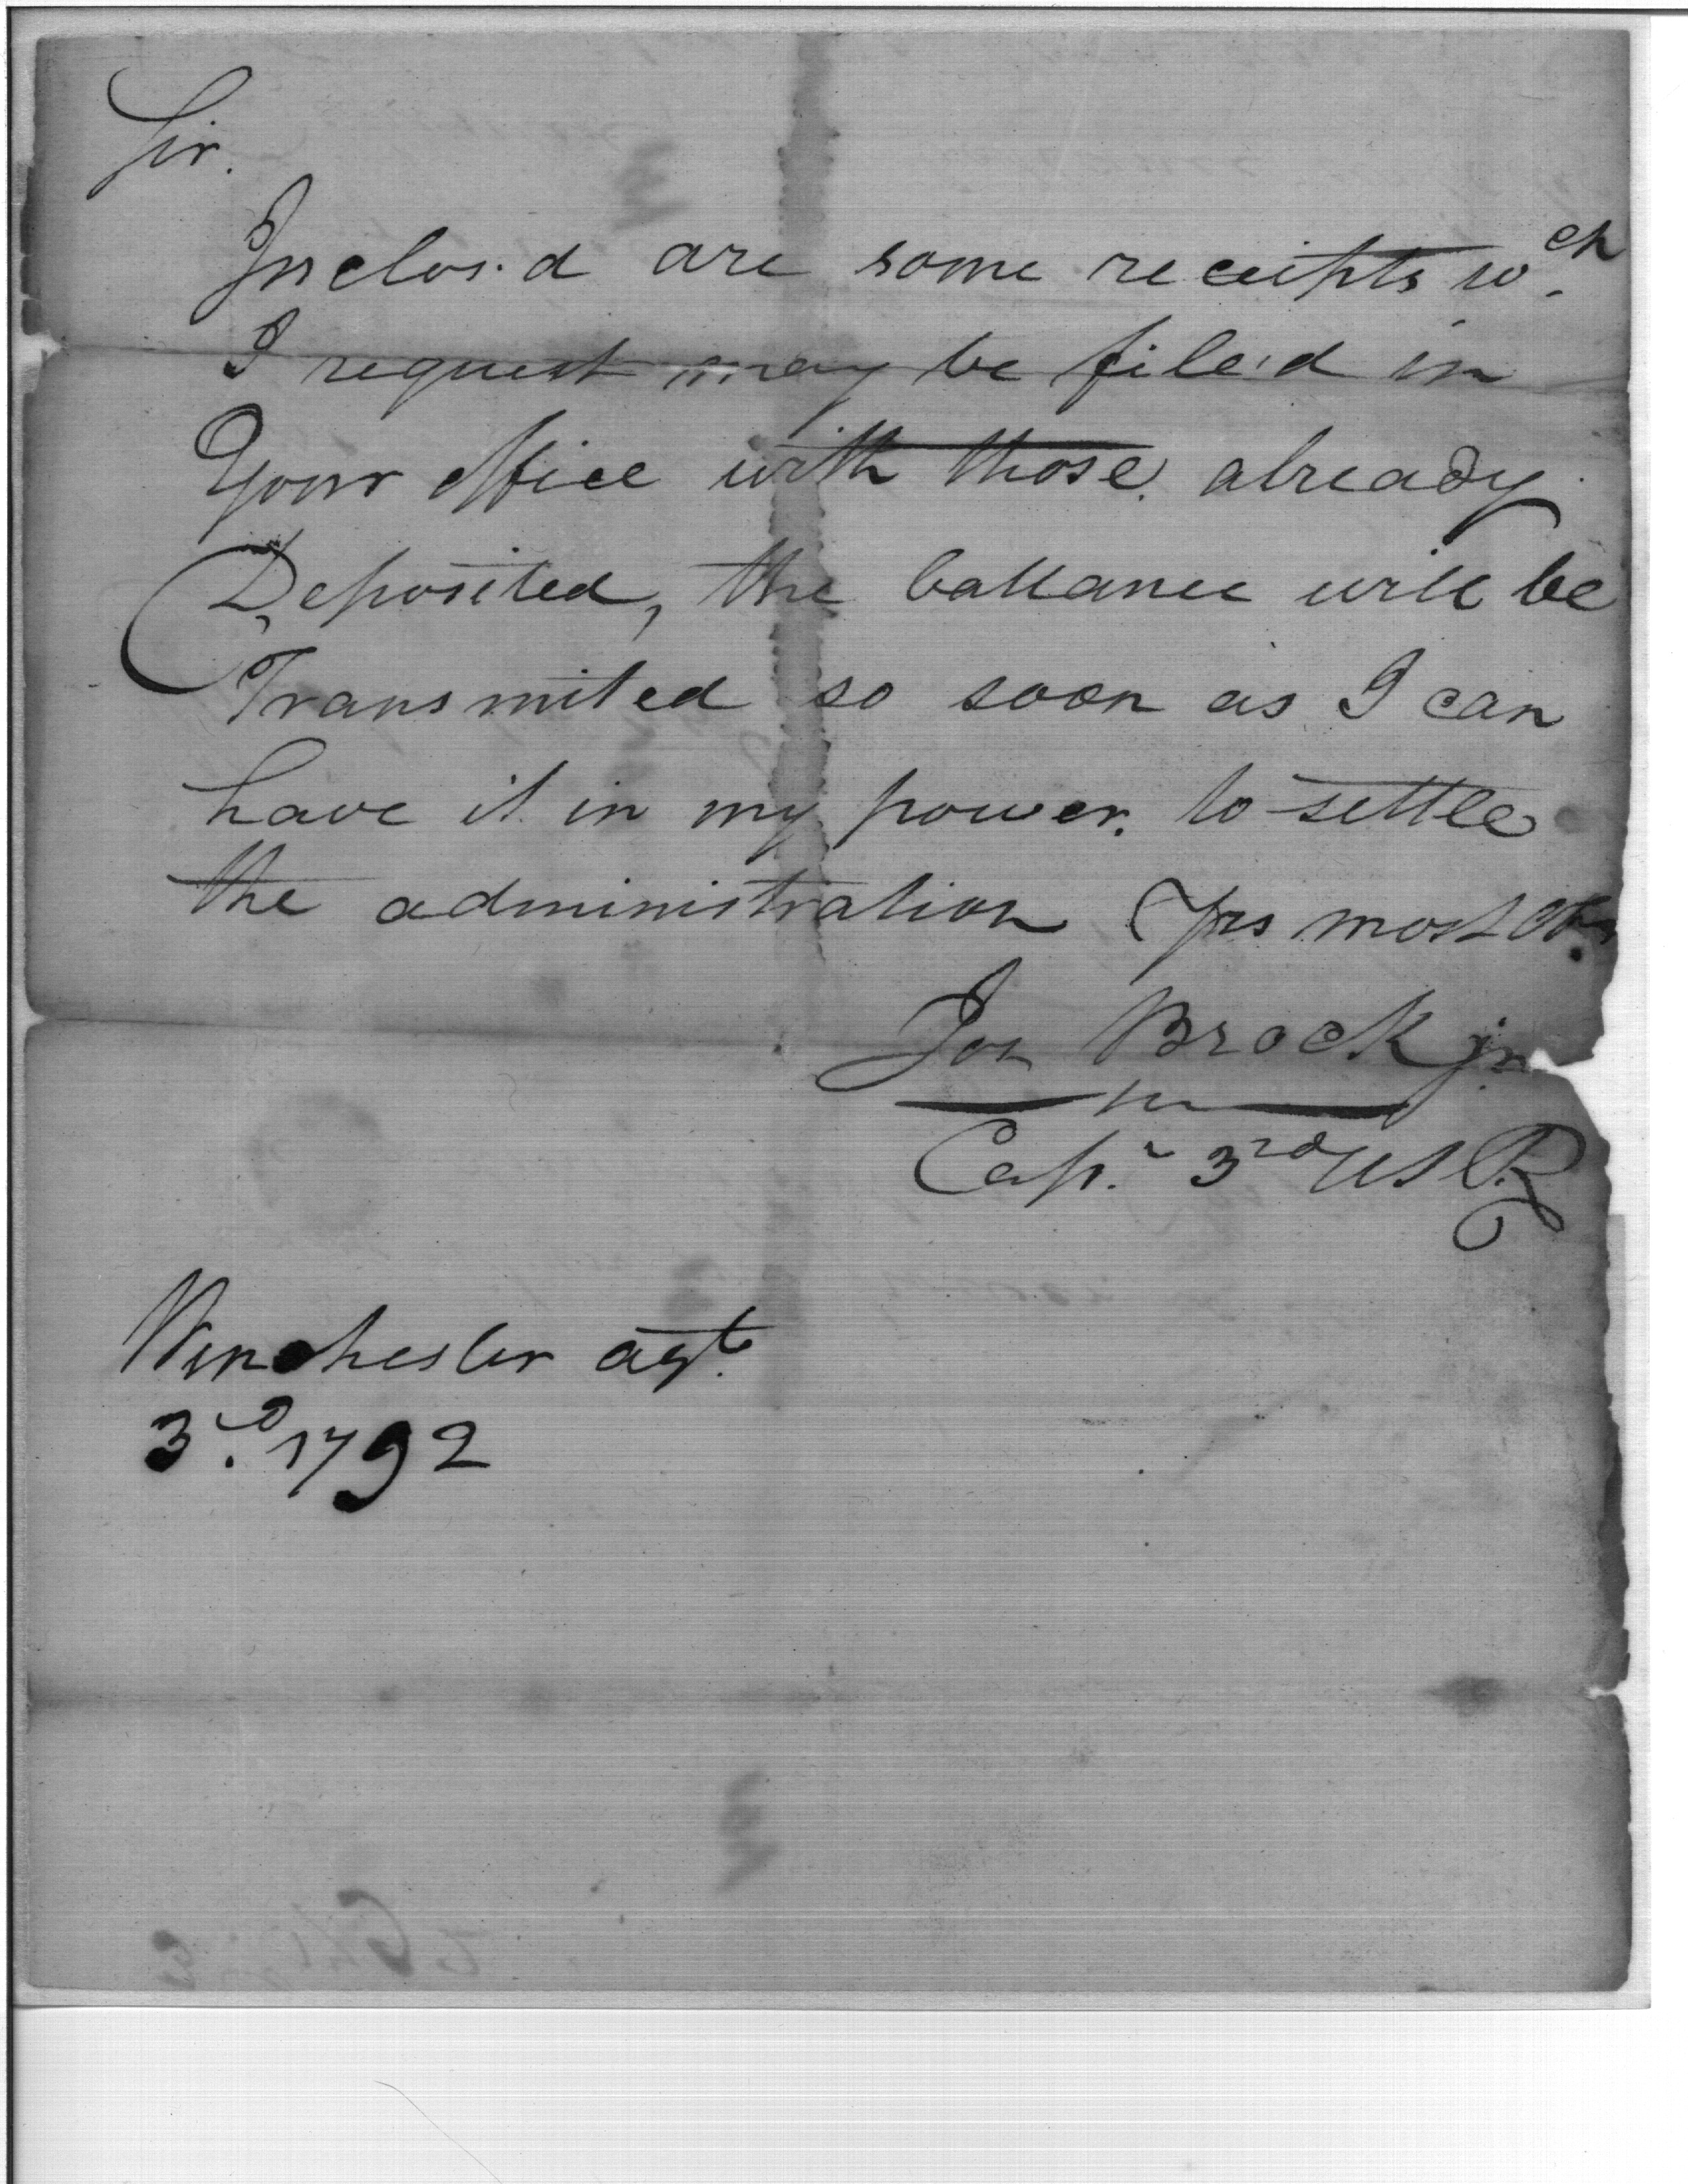 Sir.
Inclos.d are some receipts wch.
I request may be file'd in
Your office with those. already
Deposited, the ballance will be
Transmited so soon as I can
have it in my power. to settle
the administration Yrs most Ob
Jos Brock jr.
Capn. 3rd US R
Winchester agt.
3d. 1792